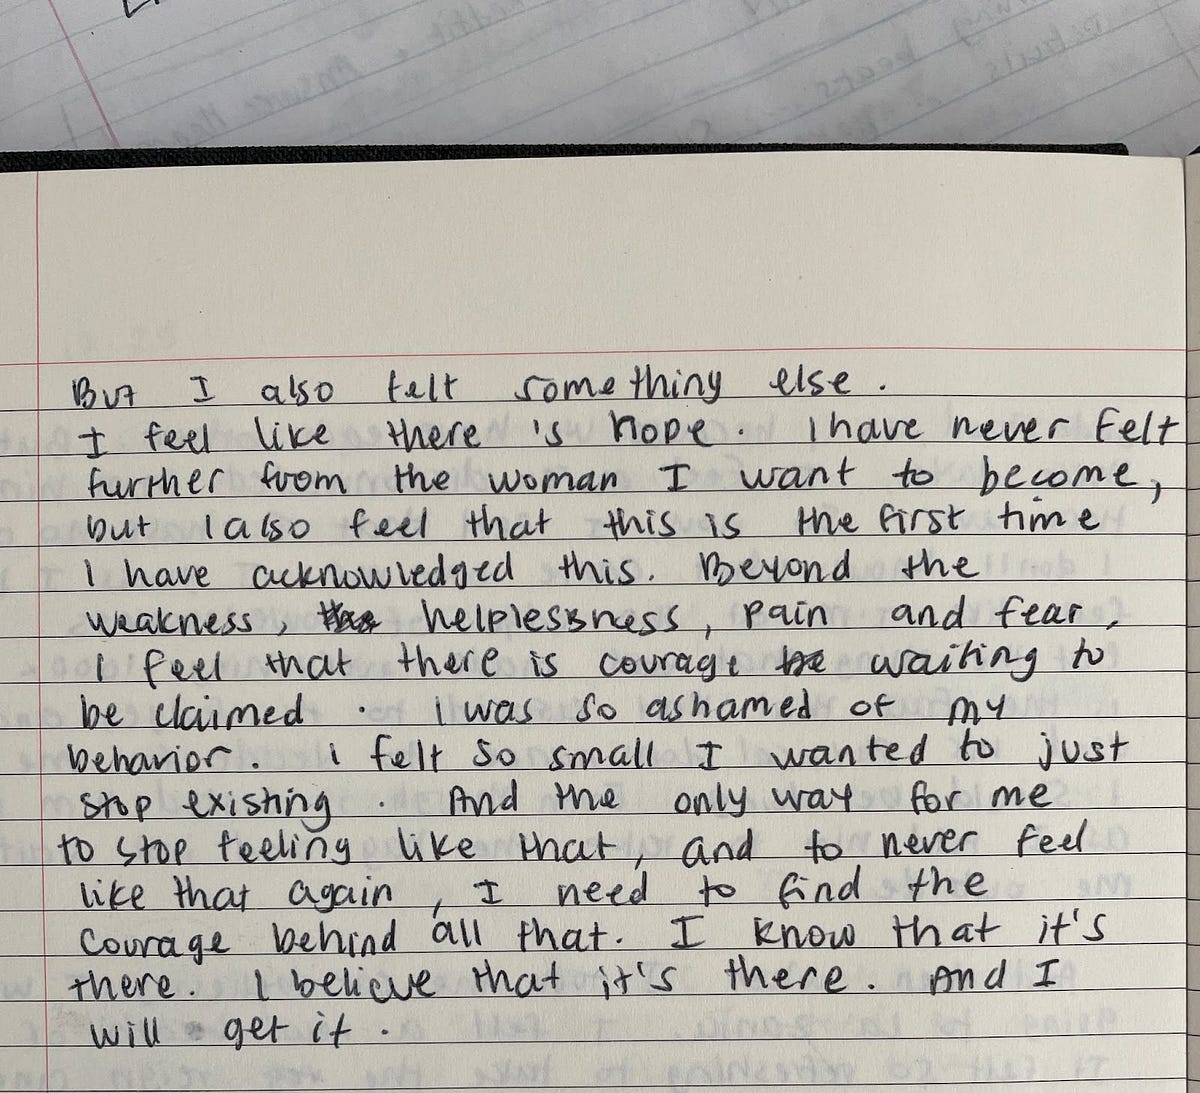 But I also felt something else.
I feel like there is hope. I have never felt
further from the woman I want to become,
but I also feel that this is the first time
I have acknowledged this. Beyond the
weakness, helplessness, pain and fear,
I feel that there is courage waiting to
be claimed. i was so ashamed of my
behavior. i felt so small I wanted to just
stop existing. And the only way for me
to stop feeling like that, and to never feel
like that again, I need to find the
courage behind all that. I know that it's
there. I believe that it's there. And I
will get it.